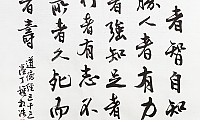 者智自知
勝人者有力
者強知足者
行者有志不
所者久死而
者壽
道德經三十三